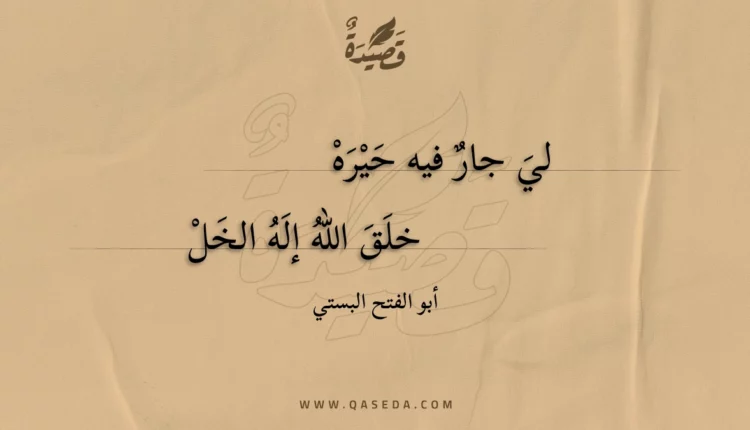 قَصِيْدَةٌ
ليَ جارٌ فيه حَيْرَهْ
خلَقَ اللهُ إلَهُ الخَلْ
أبو الفتح البستي
WWW.QASEDA.COM